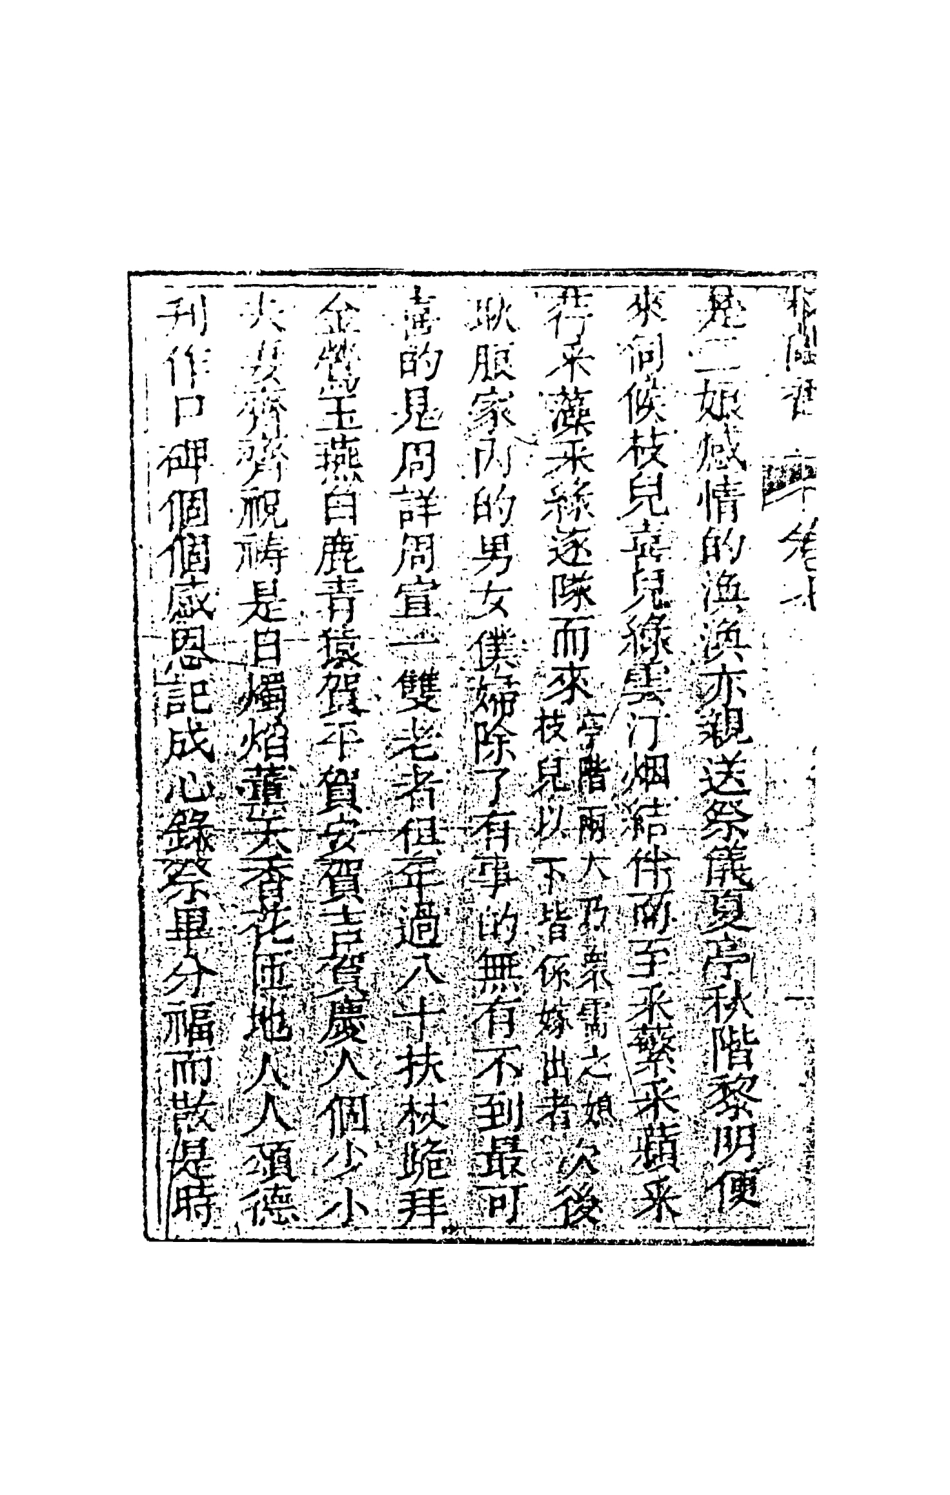 是二娘感情的渙渙亦親送祭儀夏亭秋階黎明便
來伺候枝兒喜兒綠雲汀烟結伴而至采蘩采蘋采
荇采藻采綠逐隊而來亭階兩大乃衆孺之娘次後
枝兒以下皆係嫁出者
耿服家內的男女僕婦除了有事的無有不到最可
喜的是周詳周宣一雙老者但年過八十扶杖跪拜
金鶯玉燕白鹿青猿賀平賀安賀吉賀慶人個少小
大女齊齊祝禱是日燭焰薰天香花匝地人人頌德
刊作口碑個個感恩記成心錄祭畢分福而散是時